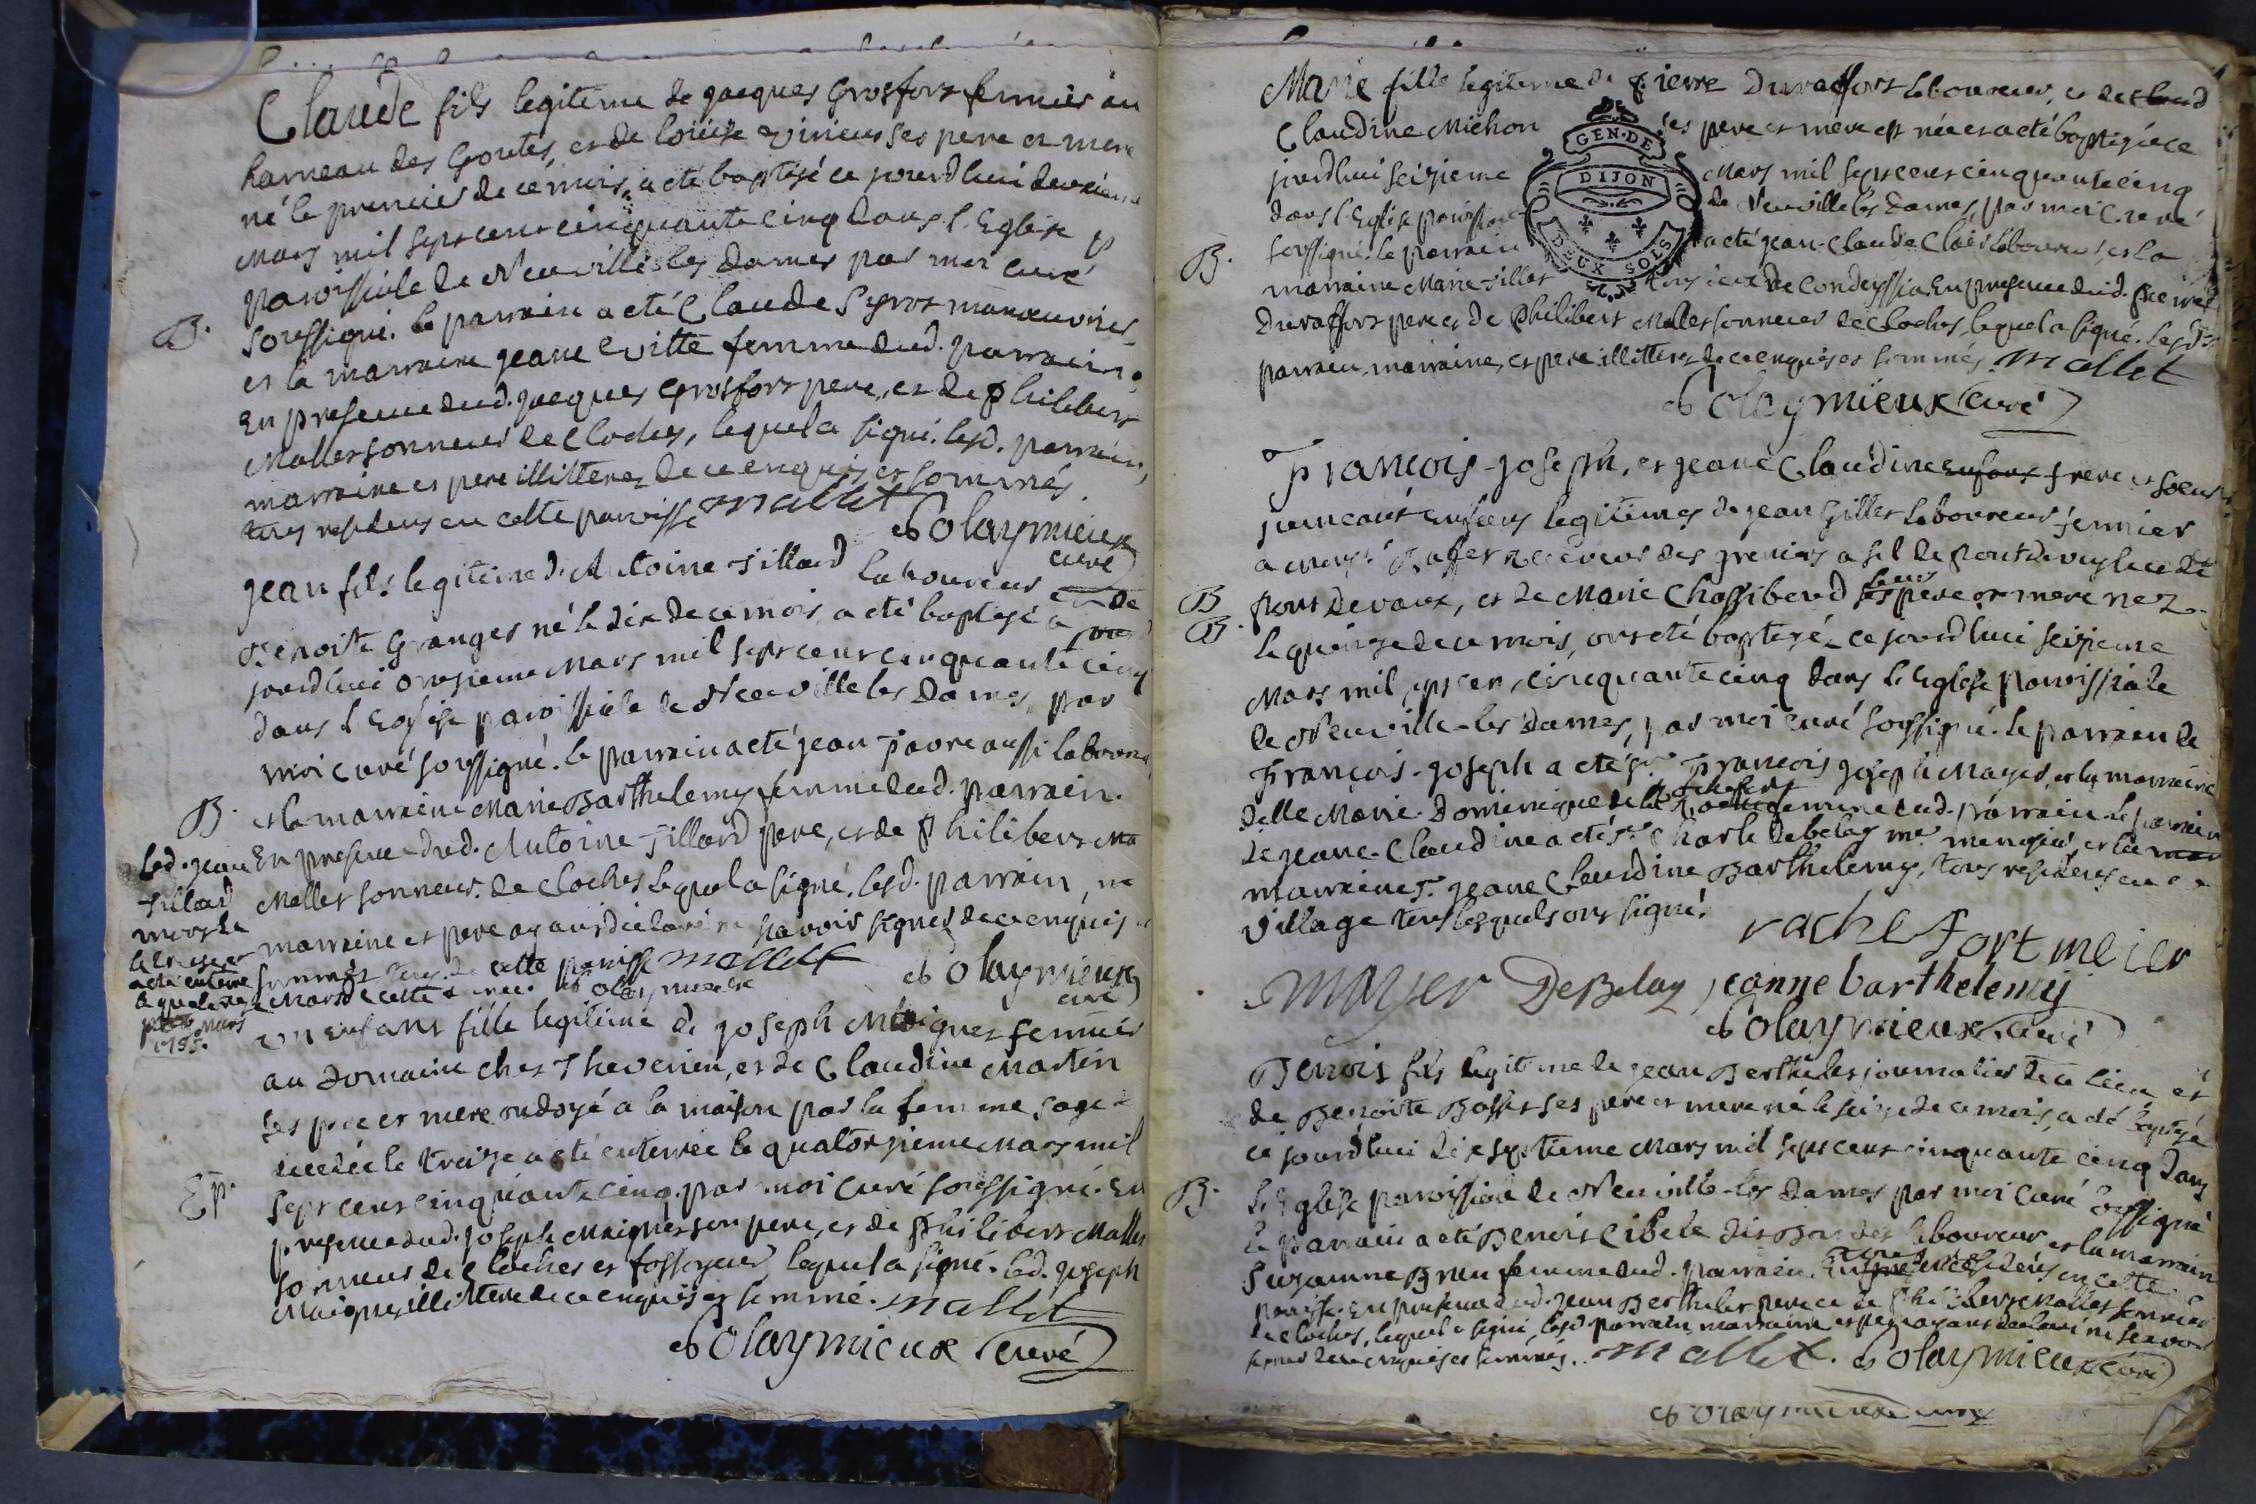 Claude fils legiteme de jacques Grosfort fermier au
hameau des Goutes, et de loüise viricus ses pere et mere
né le premier de ce mois, a eté baptisé ce jourdhui deuxieme
Mars mil sept cent cinquante cinq dans l'Eglise
paroissiale de Neuville les Dames par moi curé
B. soussigné. le parrain a eté Claude Sgros manoeuvrier
et la marraine jeane evitte femme dud. parrain.
En presence dud. jacques Grosfort pere, et de philibert
Mallet sonneur de Cloches, lequel a signé. lesd. parrain,
marraine et pere illitteres de ce enquis et sommés.
tous residens en cette paroisse mallet
B Olaymieux
curé
jean fils legiteme d'Antoine Tillard laboureur et de
Benoite Granger né le dix de ce mois, a eté baptisé ce
jourdhui onzieme Mars mil sept cent cinquante cinq
dans l'Eglise paroissiale de Neuville les Dames, par
moi curé soussigné. le parrain a eté jean favre aussi laboureur
B. et la marraine Marie Barthelemy femme dud. parrain.
En presence dud. Antoine Tillard pere, et de philibert Ma
Mallet sonneur de Cloches lequel a signé. lesd. parrain,
marraine et pere ayans declaré ne savoir signer de ce enquis et
sommés tous de cette paroisse mallet B Olaymieux
curé
led. jean
Tillard
mort le
a eté enterré
Mars
1755.
un enfant fille legiteme de joseph Maigret fermier
au domaine chez Thevenin, et de Claudine Martin
ses pere et mere ondoyé a la maison par la femme sage
decedée le treize a eté enterrée le quatorzieme Mars mil
Ep. sept cent cinquante cinq. par moi curé soussigné. En
presence dud. joseph Maigret son pere, et de philibert Mallet
sonneur de Cloches et fossoyeur lequel a signé. led. joseph
Maigret illittere de ce enquis et sommé. mallet
B Olaymieux curé
Marie fille legiteme de pierre Duraffort laboureur, et de
Claudine Michon ses pere et mere est née et a eté baptisée ce
jourdhui seizieme Mars mil sept cent cinquante cinq
dans l'Eglise paroissiale de Neuville les Dames, par moi Curé
B. soussigné. le parrain a eté jean Claude Clais laboureur et la
marraine Marie Tillet tous deux de Condeyssia. En presence dud. pierre
Duraffort pere et de Philibert Mallet sonneur de Cloches lequel a signé. lesd.
parrain, marraine, et pere illitteres de ce enquis et sommés. mallet
GEN. DE
DIJON
DEUX SOLS
B Olaymieux curé
François-joseph, et jeane Claudine frere et soeur
jumeaux enfans legitimes de jean Gillet laboureur fermier
a receveur des greniers a sel de pont de veyle et de
B pont de vaux, et de Marie Chassibeud leurs pere et mere nez
B. le quinze de ce mois, ont eté baptisé ce jourdhui seizieme
Mars mil sept cent cinquante cinq dans l'Eglise paroissiale
de Neuville-les Dames, par moi curé soussigné. le parrain de
François-joseph a eté Sr. François joseph Mayer, et la marraine
Delle Marie-Dominique de Rochefort femme dud. parrain. le parrain
de jeane-Claudine a eté Sr. Charle Debelay me. menusié, et la
marraine jeane Claudine Barthelemy, tous residens en ce
village tous lesquels ont signé.
rachefort meier
mayer DeBelay jeanne barthelemy
B Olaymieux curé
Benoit fils legitime de jean Berthelet journalier de ce lieu et
de Benoite Bosset ses pere et mere né le seize de ce mois, a eté baptisé
ce jourdhui dixseptieme Mars mil sept cent cinquante cinq dans
B. l'Eglise paroissiale de Neuville-les Dames par moi curé soussigné
le parrain a eté Benoit Cibele laboureur et la marraine
Suzanne Breu femme dud. parrain. residens en cette
paroisse. En presence dud. jean Berthelet pere et de Philibert Mallet sonneur
de Cloches, lequel a signé, lesd. parrain, marraine et pere ayans declaré ne scavoir
signer de ce enquis et sommés. mallet. B Olaymieux curé
B Olaymieux curé